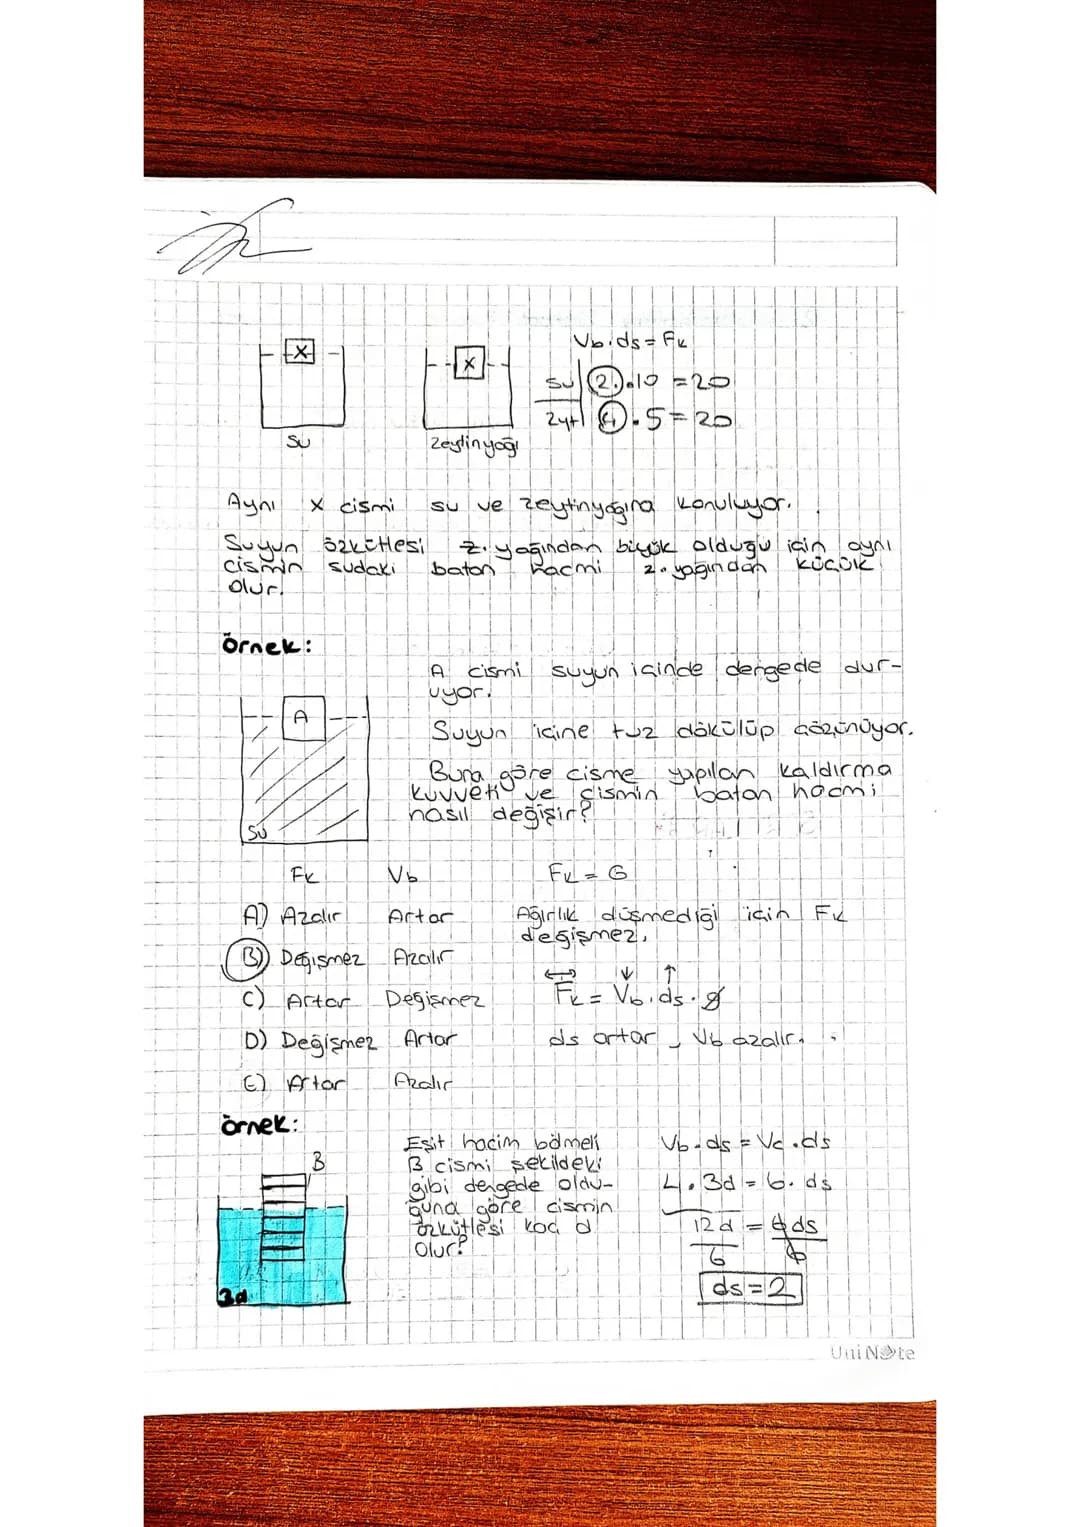 X
X
Su
Zeytinyağı
Vb.ds = Fk
Su 2.10 = 20
Zyt 4.5 = 20
Aynı X cismi su ve zeytinyağına konuluyor.
Suyun özkütlesi z. yağından büyük olduğu için aynı
cismin sudaki batan hacmi z. yağından küçük
olur.
Örnek:
A
Su
A cismi suyun içinde dengede dur-
uyor.
Suyun içine tuz dökülüp çözünüyor.
Buna göre cisme yapılan kaldırma
kuvveti ve cismin batan hacmi
nasıl değişir?
Fk Vb
A) Azalır Artar
B) Değişmez Azalır
C) Artar Değişmez
D) Değişmez Artar
E) Artar Azalır
Fk = G
Ağırlık düşmediği için Fk
değişmez.
↔ ↓ ↑
Fk = Vb.ds.g
ds artar, Vb azalır.
Örnek:
B
3d
Eşit hacim bölmeli
B cismi şekildeki
gibi dengede oldu-
ğuna göre cismin
özkütlesi kaç d
olur?
Vb.ds = Vc.ds
4.3d = 6.ds
12d = 6ds
6 6
ds = 2
UniNote